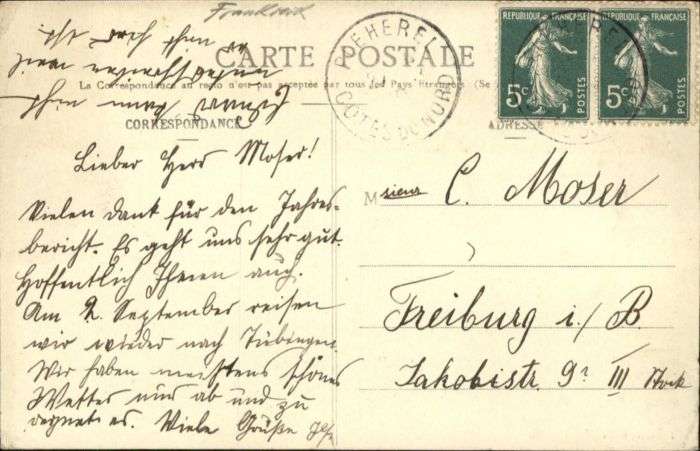 Frankreich
CARTE POSTALE
La Correspondance au recto n'est pas acceptée par tous les Pays Étrangers (Se
CORRESPONDANCE
ADRESSE
REPUBLIQUE FRANÇAISE
5c
POSTES
REPUBLIQUE FRANÇAISE
5c
POSTES
PLEHEREL
COTES DU NORD
Lieber Herr Moser!
Vielen dank für den Jahres-
bericht. Es geht uns sehr gut.
Hoffentlich Ihnen auch.
Am 2. September reisen
wir wieder nach Tübingen.
Wir haben meistens schönes
Wetter nur ab und zu
regnet es. Viele Grüße
Monsieur C. Moser
Freiburg i./B.
Jakobistr. 9 III Stock